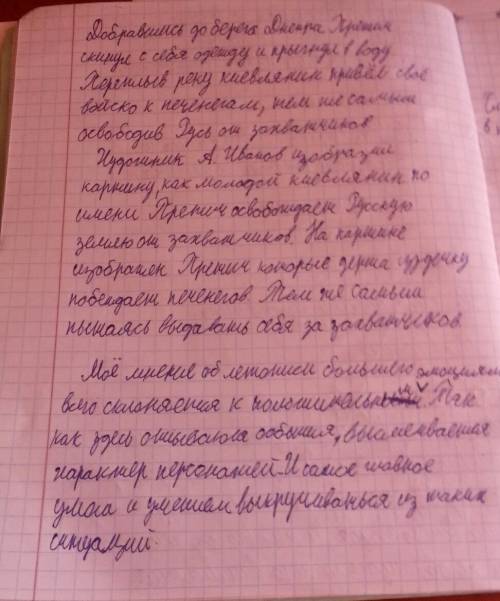 Добравшись до берега Днепра Претич
скинул с себя одежду и прыгнул в воду
Переплыв реку киевлянин привёл своё
войско к печенегам, тем же самым
освободив Русь от захватчиков
Художник А. Иванов изобразил
картину, как молодой киевлянин по
имени Претич освобождает Русскую
землю от захватчиков. На картине
изображен Претич которые держа уздечку
побеждает печенегов. Тем же самым
пытаясь выдавать себя за захватчиков.
Моё мнение об летописи большего эмоциям
всего склоняется к положительным. Так
как здесь описываюся события,
характер персонажей. И самое главное
и умением выкручиваться из таких
ситуаций.